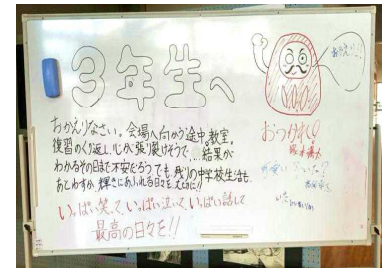 3年生へ
おかえり!!
おかえりなさい。会場へ向かう途中、教室。
復習のくり返し、心が張り裂けそうで…結果が
わかるその日まで不安だろうでも、残りの中学校生活も
あとわずか、輝きにあふれる日々を大切に!!
いっぱい笑って、いっぱい泣いて、いっぱい話して
最高の日々を!!
おつかれ!!